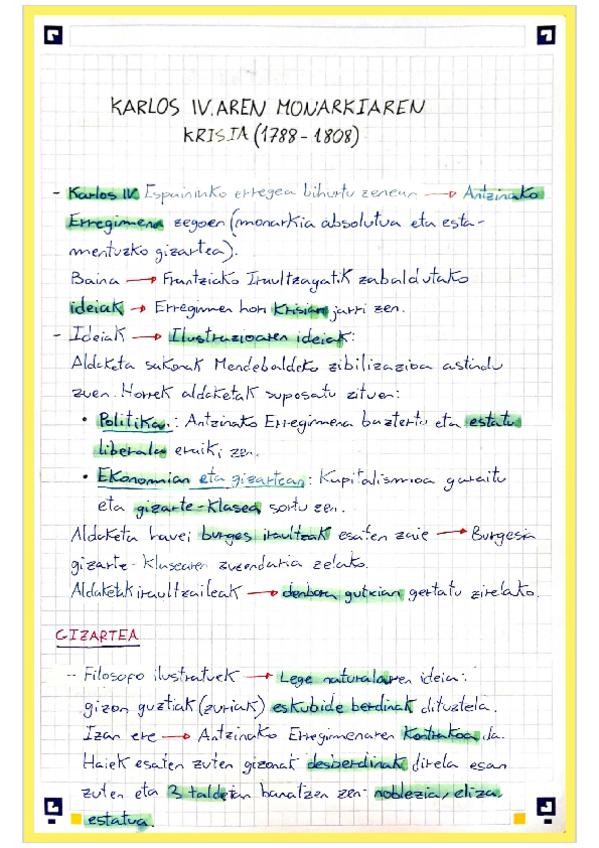 KARLOS IV.AREN MONARKIAREN
KRISIA (1788-1808)
- Karlos IV Espainiako erregea bihurtu zenean → Antzinako
Erregimena zegoen (monarkia absolutua eta esta-
mentuzko gizartea).
Baina → Frantziako Iraultzagatik zabaldutako
ideiak → Erregimen hori krisian jarri zen.
- Ideiak → Ilustrazioaren ideiak:
Aldaketa sakonak Mendebaldeko zibilizazioa astindu
zuen. Horrek aldaketak suposatu zituen:
• Politikan: Antzinako Erregimena baztertu eta estatu
liberala eraiki zen.
• Ekonomian eta gizartean: Kapitalismoa garaitu
eta gizarte-klasea sortu zen.
Aldaketa hauei burges iraultzak esaten zaie → Burgesia
gizarte-klasearen zuzendaria zelako.
Aldaketak iraultzaileak → denbora gutxian gertatu zirelako.
GIZARTEA
- Filosofo ilustratuek → Lege naturalaren ideia:
gizon guztiak (zuriak) eskubide berdinak dituztela.
Izan ere → Antzinako Erregimenaren kontrakoa da.
Haiek esaten zuten gizonak desberdinak direla esan
zuten eta 3 taldetan banatzen zen: noblezia, eliza,
estatua.